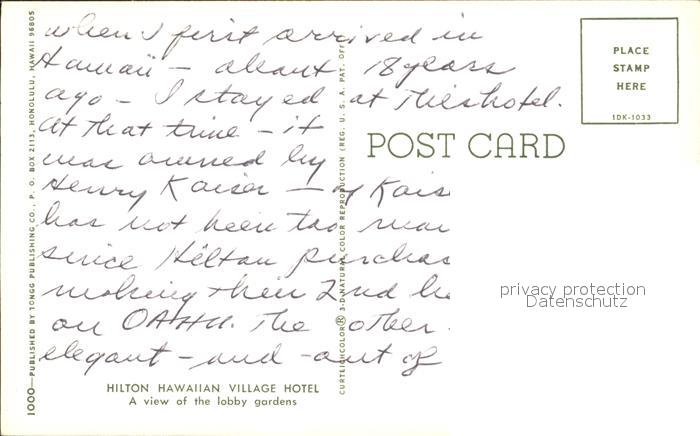 when I first arrived in
Hawaii - about 18 years
ago - I stayed at this hotel.
At that time - it
was owned by
Henry Kaiser - of Kais
has not been too
since Hilton purchas
making their 2nd h
on OAHU. The other
elegant - and - out of
HILTON HAWAIIAN VILLAGE HOTEL
A view of the lobby gardens
1000—PUBLISHED BY TONGG PUBLISHING CO., P. O. BOX 2113, HONOLULU, HAWAII 96805
CURTEICHCOLOR® 3-D NATURAL COLOR REPRODUCTION (REG. U. S. A. PAT. OFF
POST CARD
PLACE
STAMP
HERE
1DK-1033
privacy protection
Datenschutz